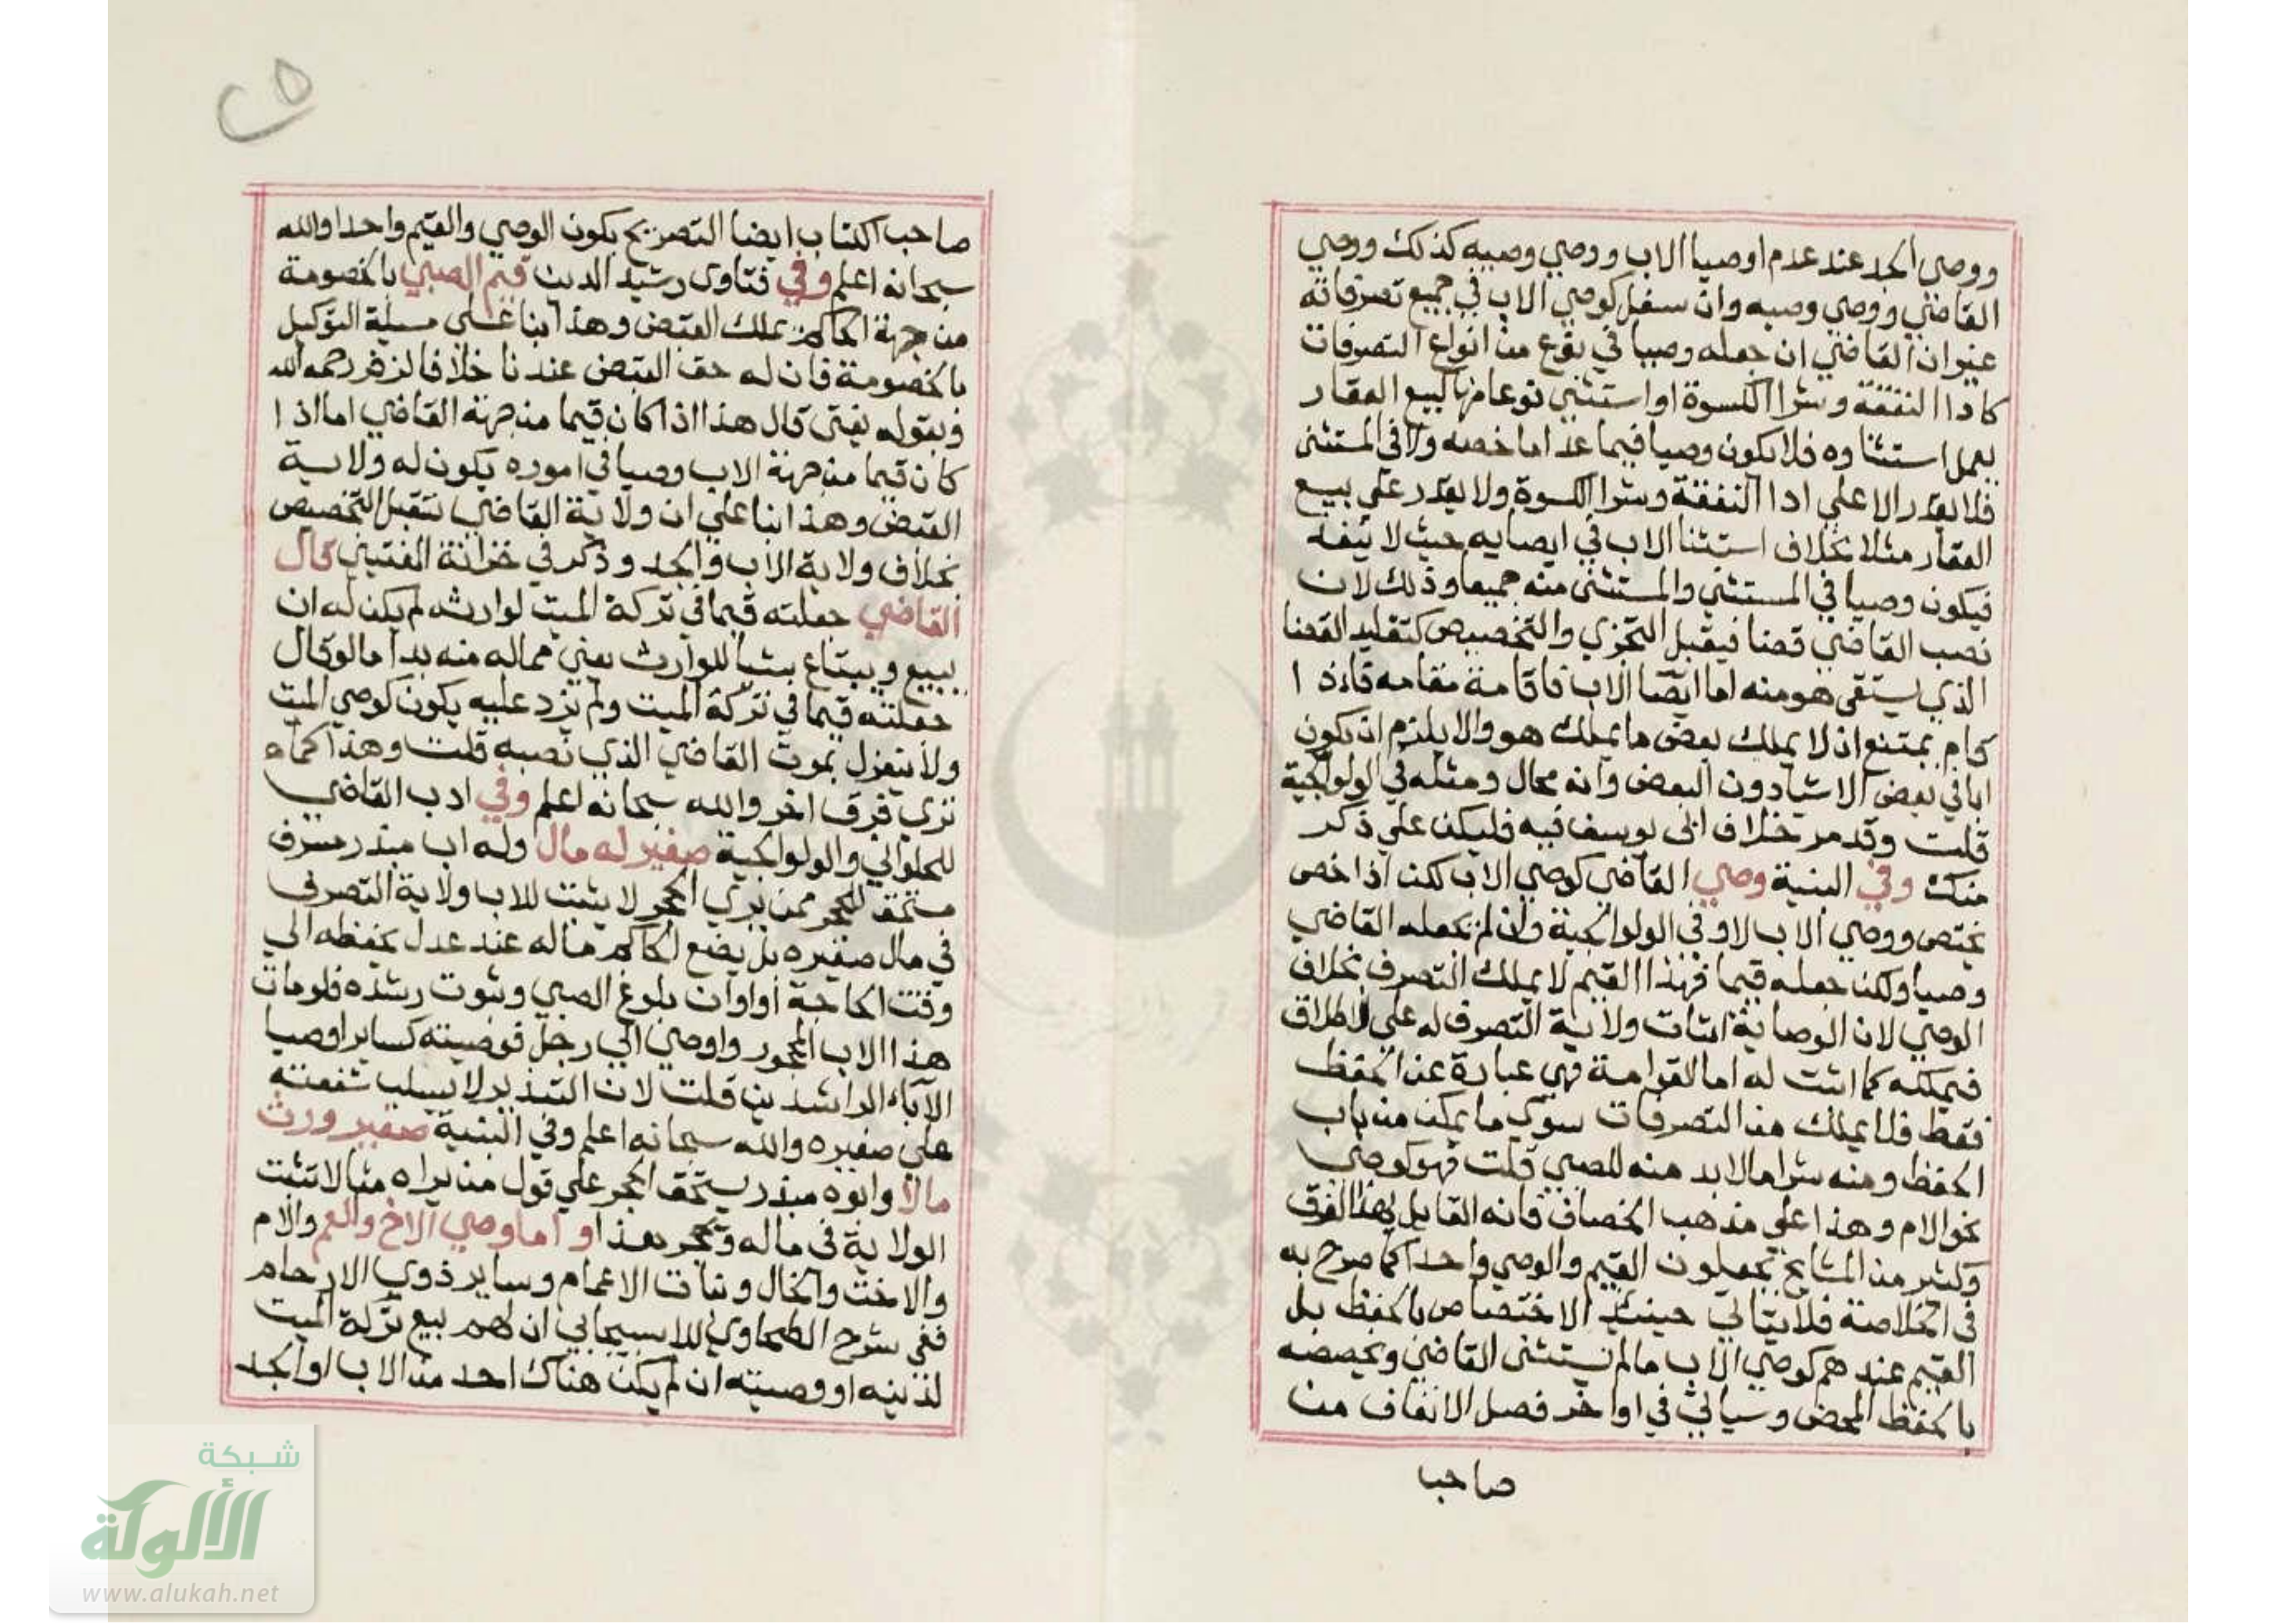 ووصي الجد عند عدم اوصيا الاب ووصي وصيه كذلك ووصي
القاضي ووصي وصيه وان سفل كوصي الاب في جميع تصرفاته
غير ان القاضي ان جعله وصيا في نوع من انواع التصرفات
كادا النفقة وشرا الكسوة او استثني نوعا منها كبيع العقار
يعمل استثناوه فلا يكون وصيا فيما عدا ما خصه ولا في المستثنى
فلا يقدر الا علي ادا النفقة وشرا الكسوة ولا يقدر علي بيع
العقار مثلا بخلاف استثنا الاب في ايصايه حيث لا
فيكون وصيا في المستثني والمستثنى منه جميعا وذلك لان
نصب القاضي قضا فيقبل التجزي والتخصيص كتقليد القضا
الذي يستقى هو منه اما ايصا الاب فاقامة مقامه فاذا
يمتنع ان لا يملك بعض ما يملك هو والا يلزم ان يكون
ابا في بعض الاشيا دون البعض وانه محال ومثله في الولوالجية
قلت وقد مر خلاف ابى يوسف فيه فليكن علي ذكر
منك وفي وصي القاضي كوصي الاب لكن اذا خص
يختص ووصي الاب لا وفي الولوالجية وان لم يجعله القاضي
وصيا ولكن جعله قيما فهذا القيم لا يملك التصرف بخلاف
الوصي لان الوصاية اثبات ولاية التصرف له علي الاطلاق
فيملكه كما اثبت له اما القوامة فهي عبارة عن الحفظ
فقط فلا يملك من التصرفات سوى ما يمكن من باب
الحفظ ومنه شرا ما لا بد منه للصبي قلت فهو كوصي
نحو الام وهذا علي مذهب الخصاف فانه القايل بهذا الفرق
وكثير من المشايخ يجعلون القيم والوصي واحدا كما صرح به
في الخلاصة فلا يتاتي حينئذ الاختصاص بالحفظ بل
القيم عندهم كوصي الاب ما لم يستثنى القاضي ويخصصه
بالحفظ المحض وسياتي في اواخر فصل الانفاق من
صاحب
صاحب الكتاب ايضا التصريح بكون الوصي والقيم واحدا والله
سبحانه اعلم وفي فتاوى رشيد الدين قيم الصبي بالخصومة
من جهة الحاكم يملك القبض وهذا بنا علي مسيلة التوكيل
بالخصومة فان له حق القبض عندنا خلافا لزفر رحمه الله
وبقوله يفتى قال هذا اذا كان قيما من جهة القاضي اما اذا
كان قيما من جهة الاب وصيا في اموره يكون له ولاية
القبض وهذا بنا علي ان ولاية القاضي تقبل التخصيص
بخلاف ولاية الاب والجد وذكر في خزانة المفتين قال
القاضي جعلته قيما في تركة الميت لوارثه لم يكن له ان
يبيع ويبتاع شيا للوارث يعني مما له منه بد اما لو قال
جعلته قيما في تركة الميت ولم يزد عليه يكون كوصي الميت
ولا ينعزل بموت القاضي الذي نصبه قلت وهذا كما
تري فرق اخر والله سبحانه اعلم وفي ادب القاضي
للحلواني والولوالجية صغير له مال وله اب مبذر مسرف
مستحق للحجر ممن يري الحجر لا يثبت للاب ولاية التصرف
في مال صغيره بل يضع الحاكم ماله عند عدل يحفظه الي
وقت الحاجة او اوان بلوغ الصبي وثبوت رشده فلو مات
هذا الاب المحجور واوصي الي رجل فوصيته كساير اوصيا
الآباء الراشدين قلت لان التبذير لا يسلب شفقته
علي صغيره والله سبحانه اعلم وفي صغير ورث
مالا وابوه مبذر يستحق الحجر علي قول من يراه لا تثبت
الولاية في ماله واما وصي الاخ والعم والام
والاخت والخال وبنات الاعمام وساير ذوي الارحام
ففي شرح الطحاوي للاسبيجابي ان لهم بيع تركة الميت
لدينه او وصيته ان لم يكن هناك احد من الاب او الجد
شبكة
الألوكة
www.alukah.net